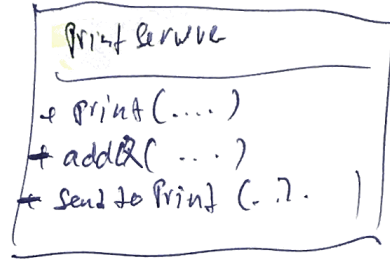 Print Server
+ print(....)
+ addQ( ...)
+ send to Print (. . . )